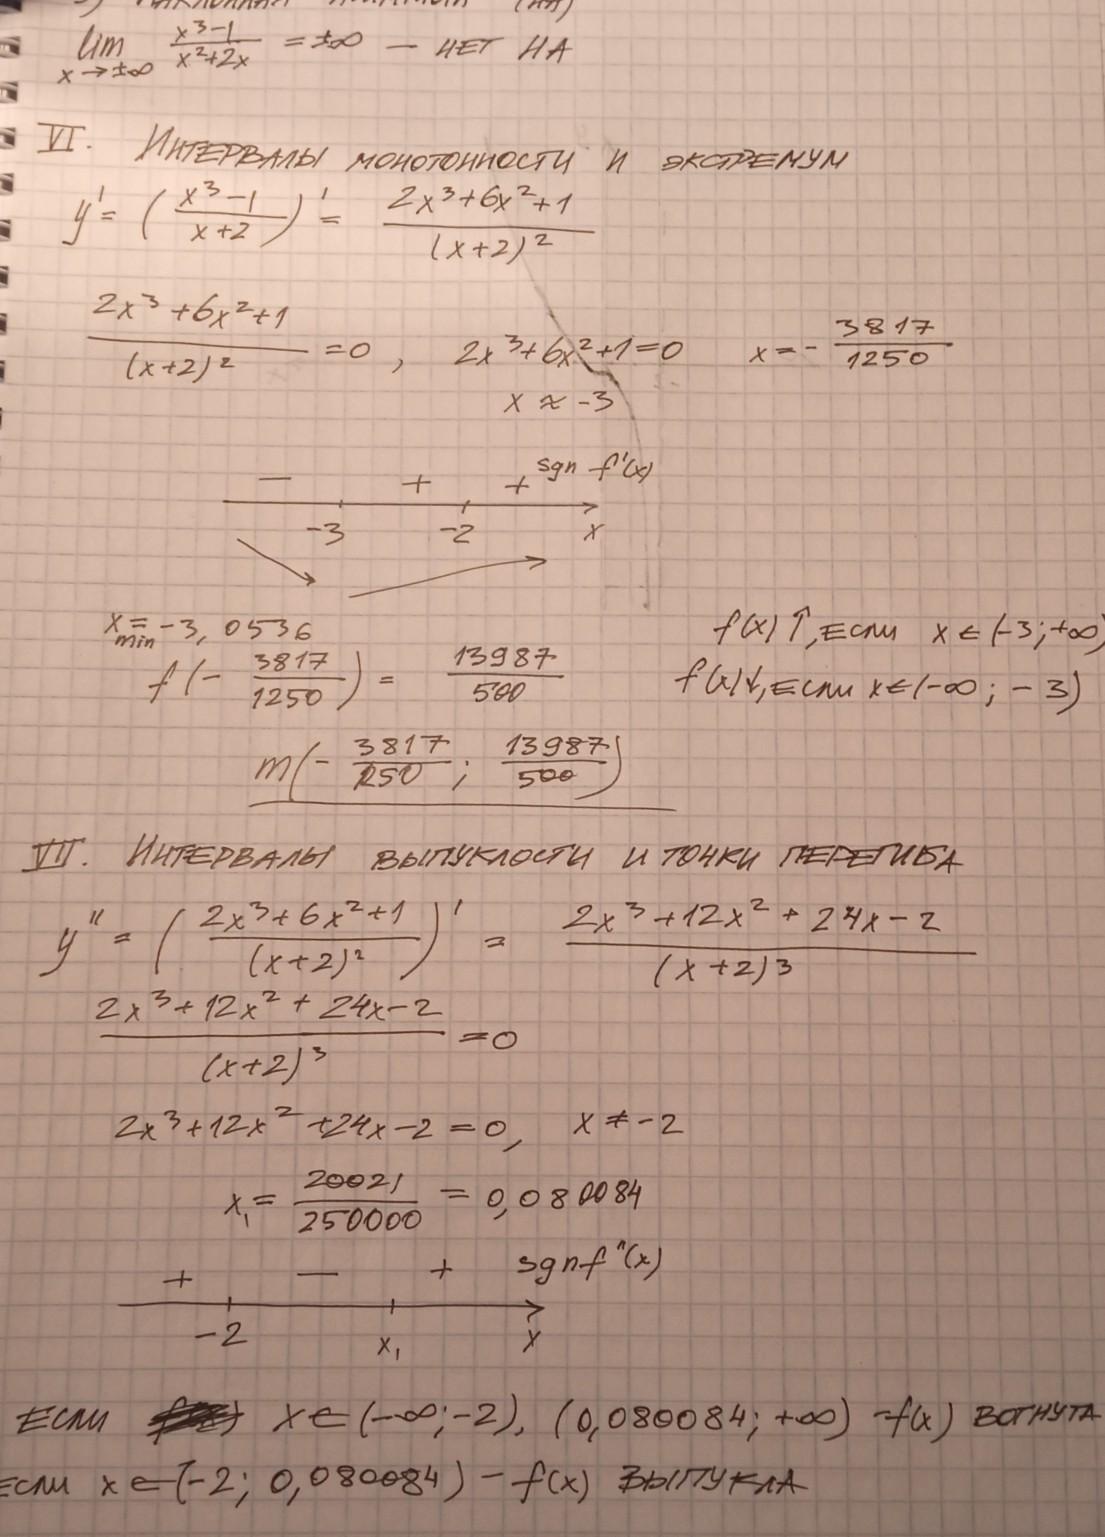 3) НАКЛОННАЯ (НА)
lim x→±∞ (x³-1)/(x²+2x) = ±∞ — НЕТ НА
VI. ИНТЕРВАЛЫ МОНОТОННОСТИ И ЭКСТРЕМУМ
y' = ((x³-1)/(x+2))' = (2x³+6x²+1)/(x+2)²
(2x³+6x²+1)/(x+2)² = 0, 2x³+6x²+1=0 x = - 3817/1250
x ≈ -3
— + + sgn f'(x)
-3 -2 x
x min = -3,0536
f(x)↑, ЕСЛИ x ∈ (-3; +∞)
f(- 3817/1250) = 13987/500
f(x)↓, ЕСЛИ x ∈ (-∞; -3)
m(- 3817/1250; 13987/500)
VII. ИНТЕРВАЛЫ ВЫПУКЛОСТИ И ТОЧКИ ПЕРЕГИБА
y'' = ((2x³+6x²+1)/(x+2)²)' = (2x³+12x²+24x-2)/(x+2)³
(2x³+12x²+24x-2)/(x+2)³ = 0
2x³+12x²+24x-2=0, x ≠ -2
x₁ = 20021/250000 = 0,080084
+ — + sgn f''(x)
-2 x₁ x
ЕСЛИ x ∈ (-∞; -2), (0,080084; +∞) - f(x) ВОГНУТА
ЕСЛИ x ∈ (-2; 0,080084) - f(x) ВЫПУКЛА